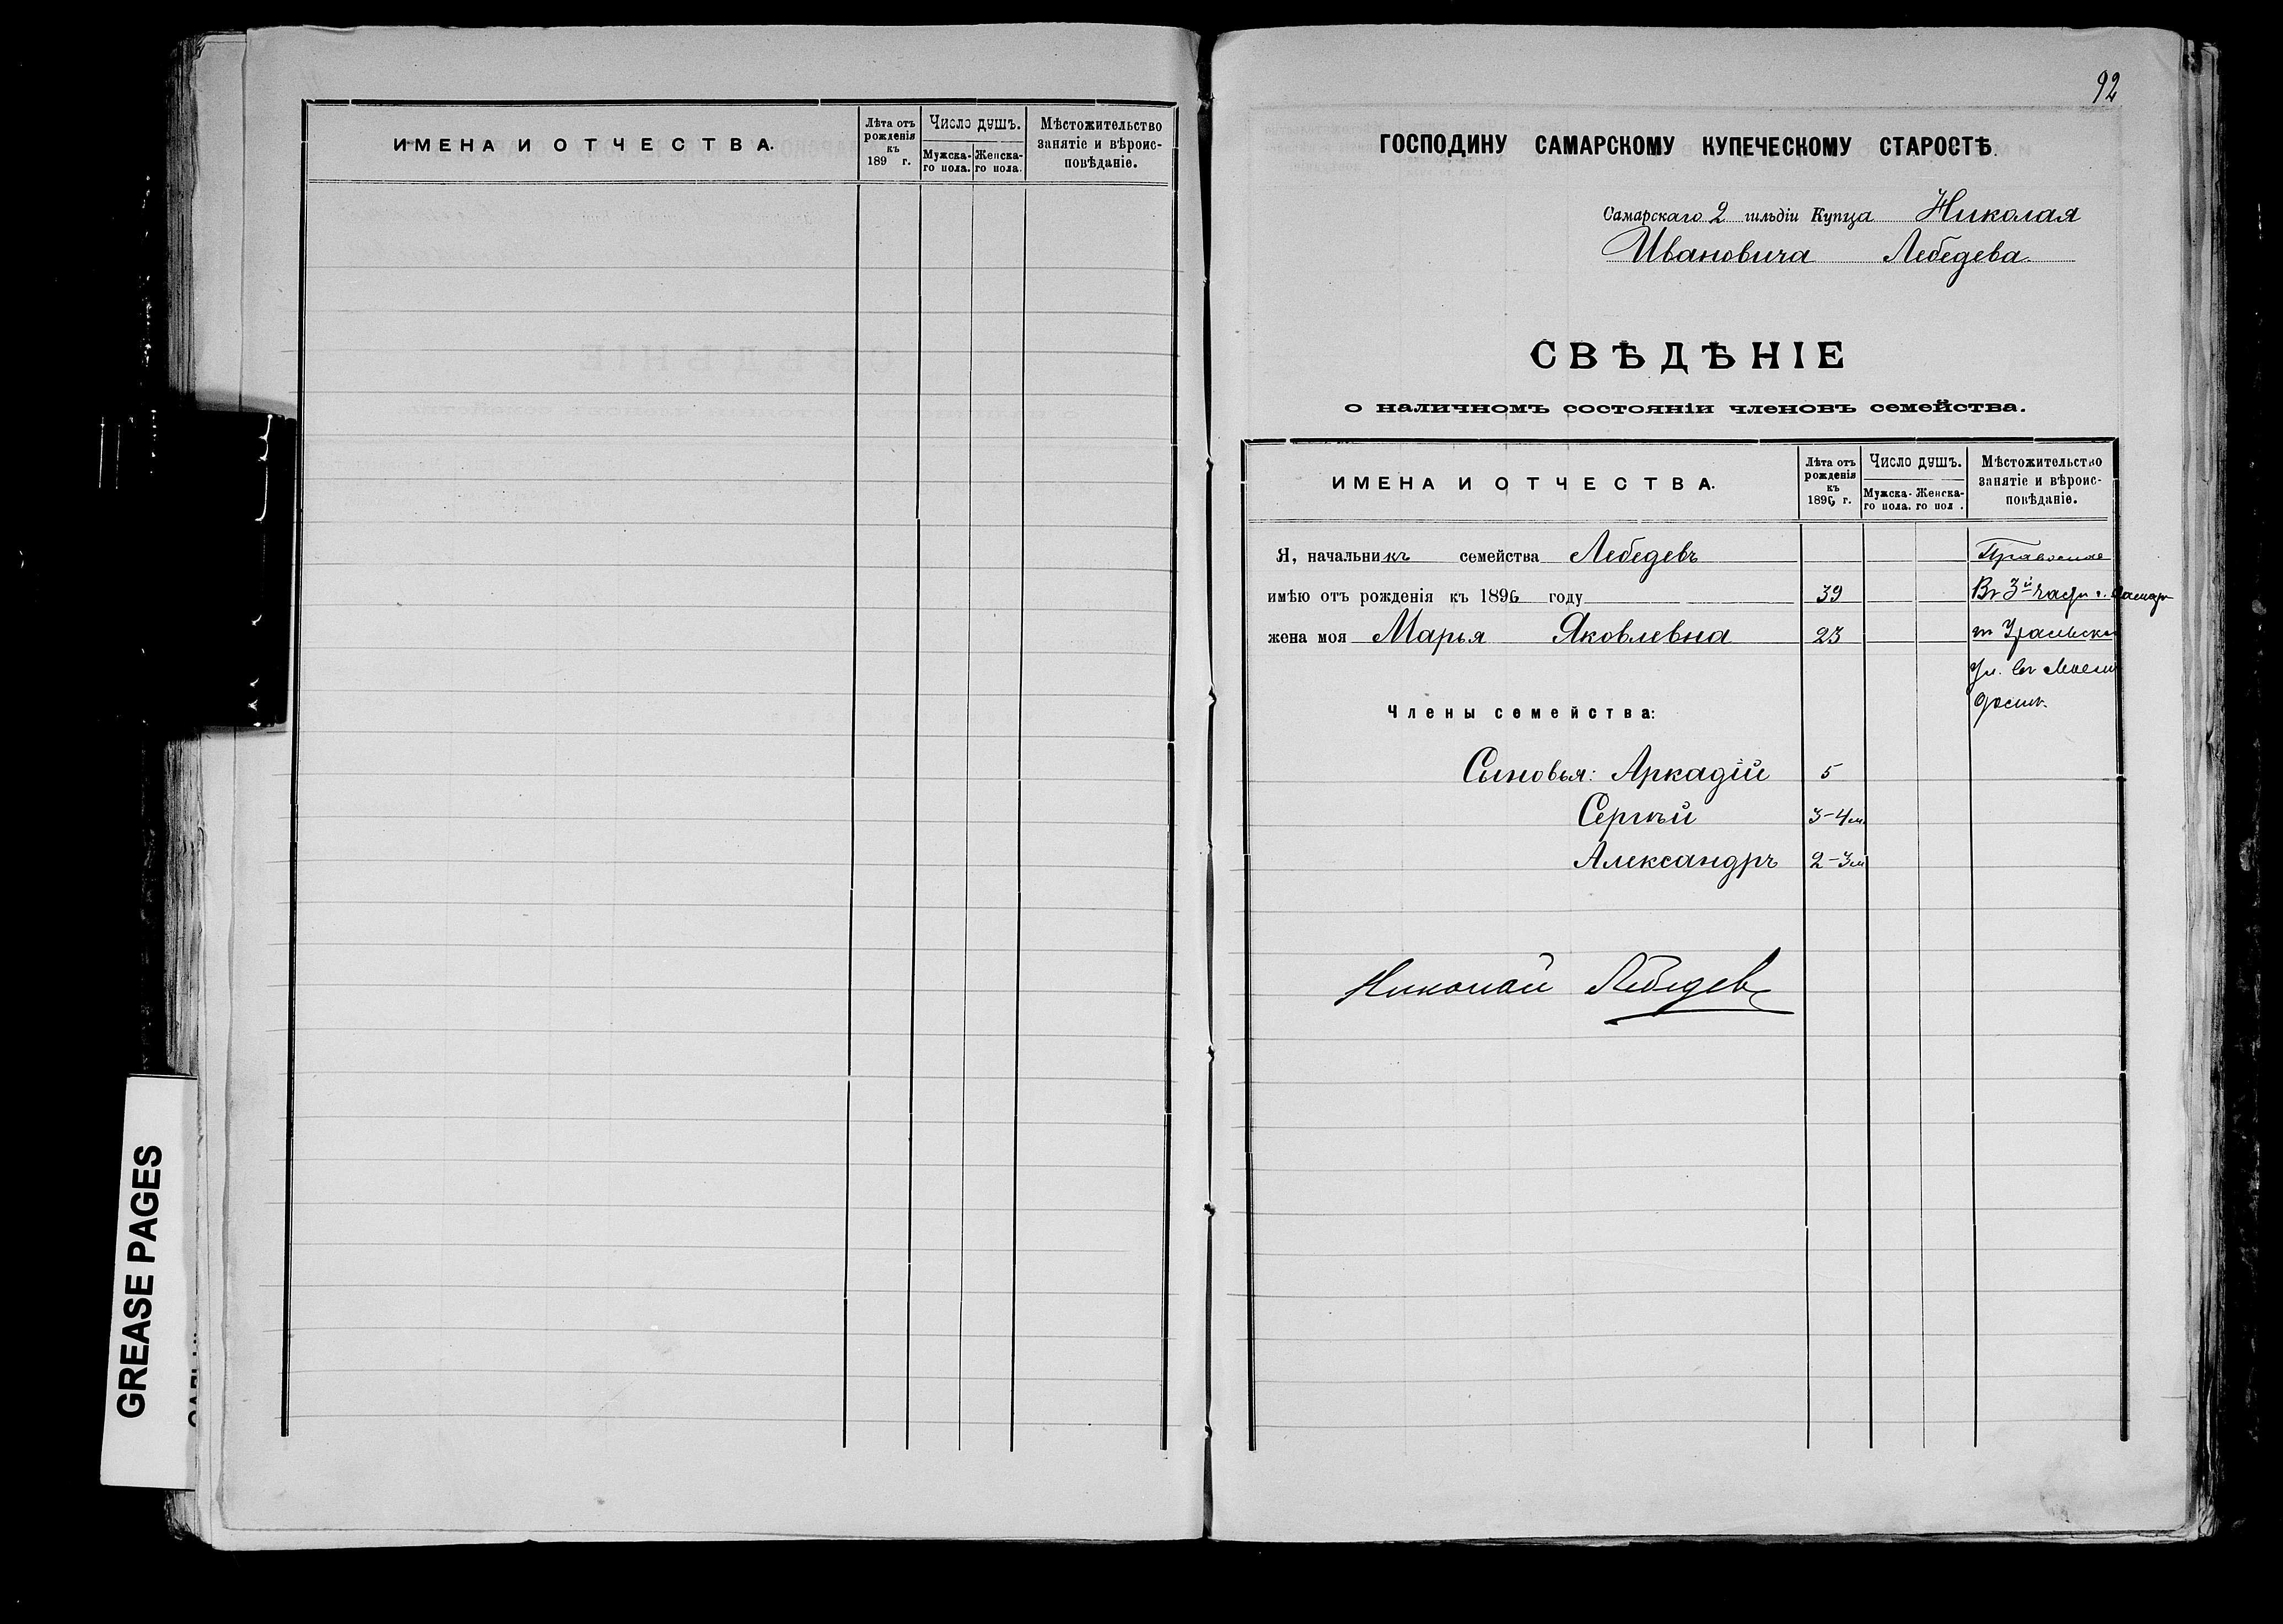 ИМЕНА И ОТЧЕСТВА.
Лѣта отъ рожденія къ 189 г.
Число душъ.
Мужска-го пола.
Женска-го пола.
Мѣстожительство занятіе и вѣроис-повѣданіе.
GREASE PAGES
92
ГОСПОДИНУ САМАРСКОМУ КУПЕЧЕСКОМУ СТАРОСТѢ.
Самарскаго 2 гильдіи Купца Николая
Ивановича Лебедева
СВѢДѢНІЕ
о наличномъ состояніи членовъ семейства.
ИМЕНА И ОТЧЕСТВА.
Лѣта отъ рожденія къ 1896 г.
Число душъ.
Мужска-го пола.
Женска-го пол .
Мѣстожительство занятіе и вѣроис-повѣданіе.
Я, начальникъ семейства Лебедевъ
имѣю отъ рожденія къ 1896 году 39 Въ 3й части г.
жена моя Марья Яковлевна 23
ул. въ
домѣ
Члены семейства:
Сыновья: Аркадій 5
Сергѣй 3-4м.
Александръ 2-3м
Николай Лебедев